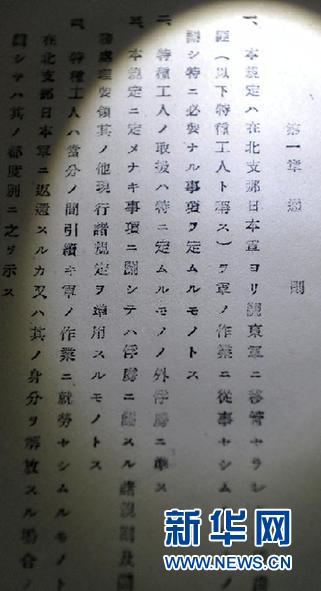 第一章 通則
一、本規定ハ在北支那日本軍ヨリ関東軍ニ移管セラレ
（以下特種工人ト称ス）ヲ軍ノ作業ニ従事セシム
関シ特ニ必要ナル事項ヲ定ムルモノトス
二、特種工人ノ取扱ハ特ニ定ムルモノノ外俘虜ニ準ス
三、本規定ニ定メナキ事項ニ関シテハ俘虜ニ関スル諸規則及
務処理要領其ノ他現行諸規定ヲ準用スルモノトス
四、特種工人ハ当分ノ間引続キ軍ノ作業ニ就労セシムルモノト
在北支那日本軍ニ返還スルカ又ハ其ノ身分ヲ解放スル場合ノ
関シテハ其ノ都度別ニ之ヲ示ス
新华网
NEWS